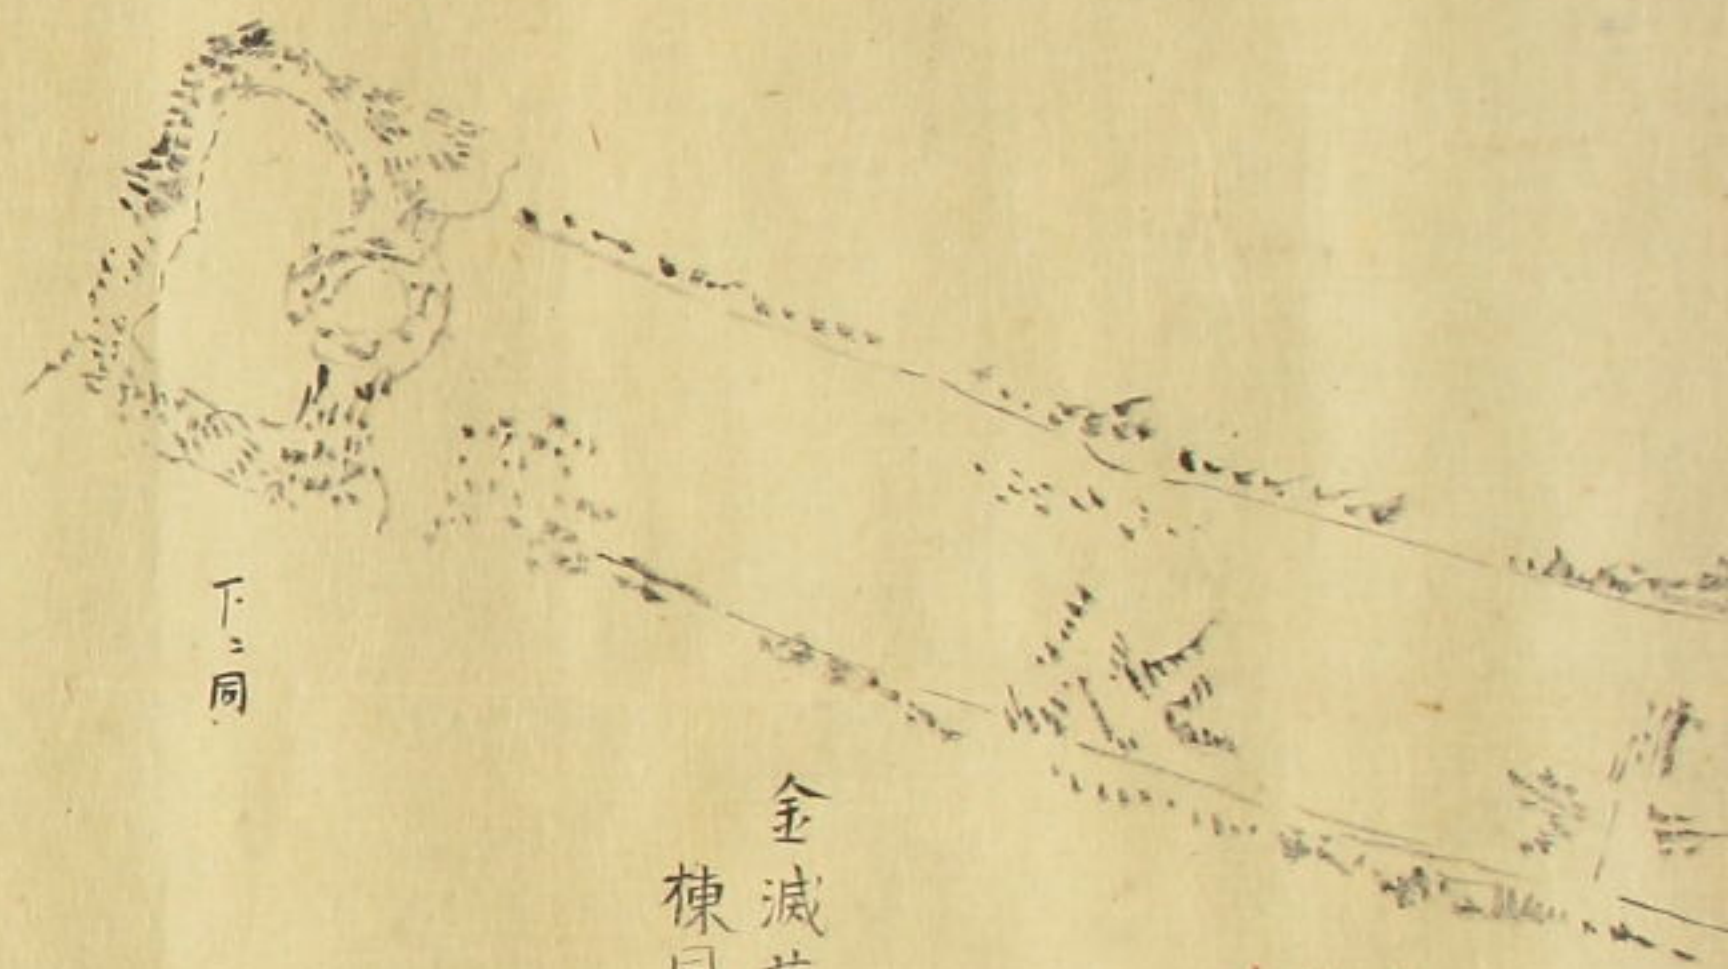 金滅
棟
下ニ同